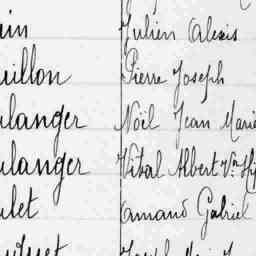 in Julien Alexis
uillon Pierre Joseph
ulanger Noël Jean Marie
ulanger Vital Albert Vor Hip
ulet Amand Gabriel